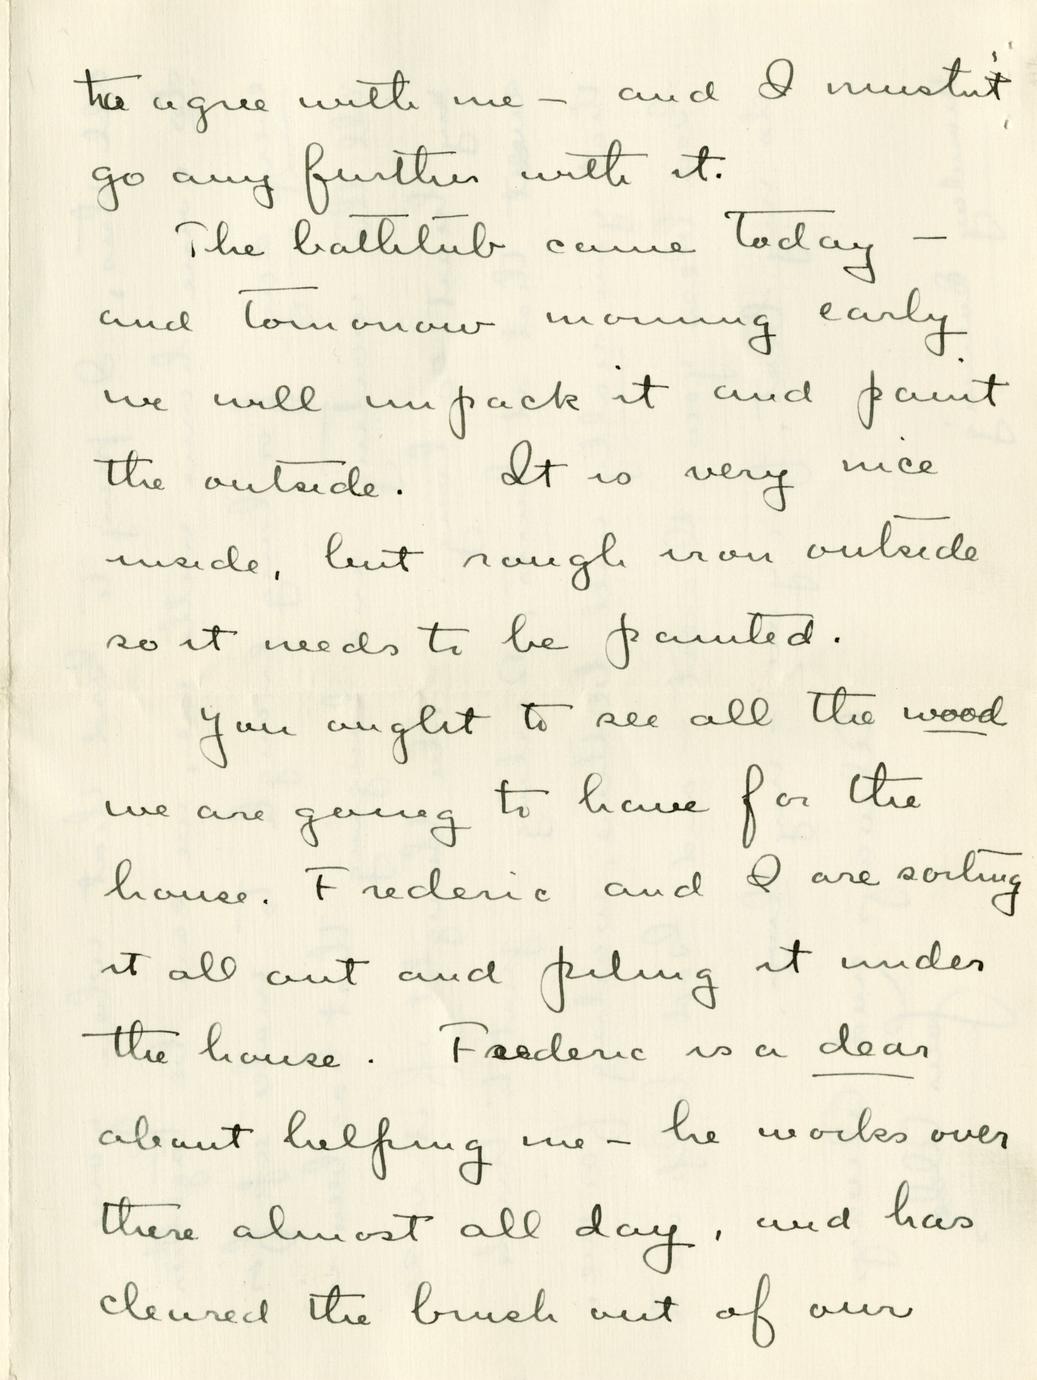 to agree with me – and I mustn't
go any further with it.
The bathtub came today –
and tomorrow morning early
we will unpack it and paint
the outside. It is very nice
inside, but rough iron outside
so it needs to be painted.
You ought to see all the wood
we are going to have for the
house. Frederic and I are sorting
it all out and piling it under
the house. Frederic is a dear
about helping me – he works over
there almost all day, and has
cleared the brush out of our